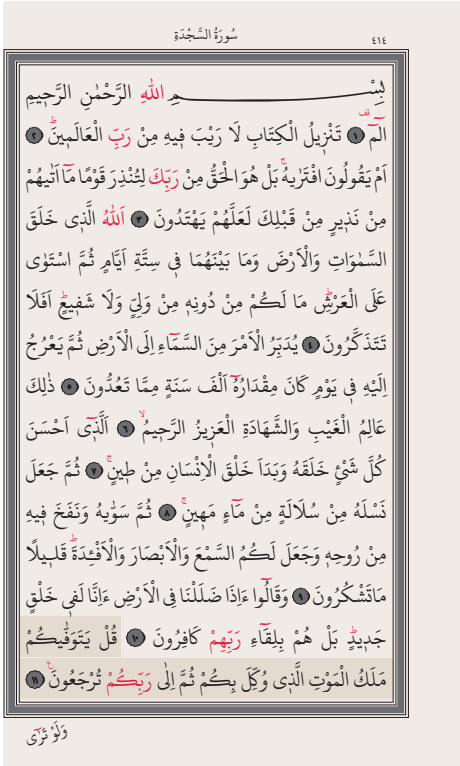 سُورَةُ السَّجْدَةِ
٤١٤
بِسْمِ اللّٰهِ الرَّحْمٰنِ الرَّحٖيمِ
الٓمٓ ۗ ﴿١﴾ تَنْزٖيلُ الْكِتَابِ لَا رَيْبَ فٖيهِ مِنْ رَبِّ الْعَالَمٖينَۜ ﴿٢﴾
اَمْ يَقُولُونَ افْتَرٰيهُۚ بَلْ هُوَ الْحَقُّ مِنْ رَبِّكَ لِتُنْذِرَ قَوْمًا مَٓا اَتٰيهُمْ
مِنْ نَذٖيرٍ مِنْ قَبْلِكَ لَعَلَّهُمْ يَهْتَدُونَ ﴿٣﴾ اَللّٰهُ الَّذٖى خَلَقَ
السَّمٰوَاتِ وَالْاَرْضَ وَمَا بَيْنَهُمَا فٖى سِتَّةِ اَيَّامٍ ثُمَّ اسْتَوٰى
عَلَى الْعَرْشِۜ مَا لَكُمْ مِنْ دُونِهٖ مِنْ وَلِىٍّ وَلَا شَفٖيعٍۜ اَفَلَا
تَتَذَكَّرُونَ ﴿٤﴾ يُدَبِّرُ الْاَمْرَ مِنَ السَّمَٓاءِ اِلَى الْاَرْضِ ثُمَّ يَعْرُجُ
اِلَيْهِ فٖى يَوْمٍ كَانَ مِقْدَارُهُٓ اَلْفَ سَنَةٍ مِمَّا تَعُدُّونَ ﴿٥﴾ ذٰلِكَ
عَالِمُ الْغَيْبِ وَالشَّهَادَةِ الْعَزٖيزُ الرَّحٖيمُۙ ﴿٦﴾ اَلَّذٖٓى اَحْسَنَ
كُلَّ شَىْءٍ خَلَقَهُ وَبَدَاَ خَلْقَ الْاِنْسَانِ مِنْ طٖينٍۚ ﴿٧﴾ ثُمَّ جَعَلَ
نَسْلَهُ مِنْ سُلَالَةٍ مِنْ مَٓاءٍ مَهٖينٍۚ ﴿٨﴾ ثُمَّ سَوّٰيهُ وَنَفَخَ فٖيهِ
مِنْ رُوحِهٖ وَجَعَلَ لَكُمُ السَّمْعَ وَالْاَبْصَارَ وَالْاَفْـِٔدَةَۜ قَلٖيلًا
مَاتَشْكُرُونَ ﴿٩﴾ وَقَالُٓوا ءَاِذَا ضَلَلْنَا فِى الْاَرْضِ ءَاِنَّا لَفٖى خَلْقٍ
جَدٖيدٍۜ بَلْ هُمْ بِلِقَٓاءِ رَبِّهِمْ كَافِرُونَ ﴿١٠﴾ قُلْ يَتَوَفّٰيكُمْ
مَلَكُ الْمَوْتِ الَّذٖى وُكِّلَ بِكُمْ ثُمَّ اِلٰى رَبِّكُمْ تُرْجَعُونَ۟ ﴿١١﴾
وَلَوْ تَرٰٓى